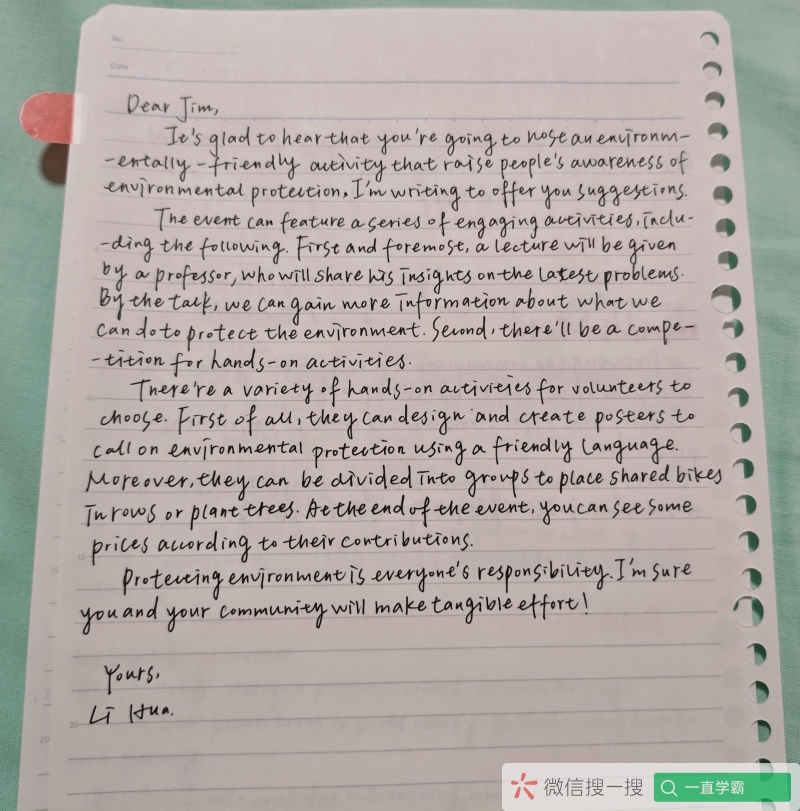 No.
Date
Dear Jim,
It's glad to hear that you're going to host an environm-
-entally-friendly activity that raise people's awareness of
environmental protection. I'm writing to offer you suggestions.
The event can feature a series of engaging activities, inclu-
-ding the following. First and foremost, a lecture will be given
by a professor, who will share his insights on the latest problems.
By the talk, we can gain more information about what we
can do to protect the environment. Second, there'll be a compe-
-tition for hands-on activities.
There're a variety of hands-on activities for volunteers to
choose. First of all, they can design and create posters to
call on environmental protection using a friendly language.
Moreover, they can be divided into groups to place shared bikes
in rows or plant trees. At the end of the event, you can set some
prices according to their contributions.
Protecting environment is everyone's responsibility. I'm sure
you and your community will make tangible effort!
Yours,
Li Hua.
20
20
微信搜一搜
一直学霸